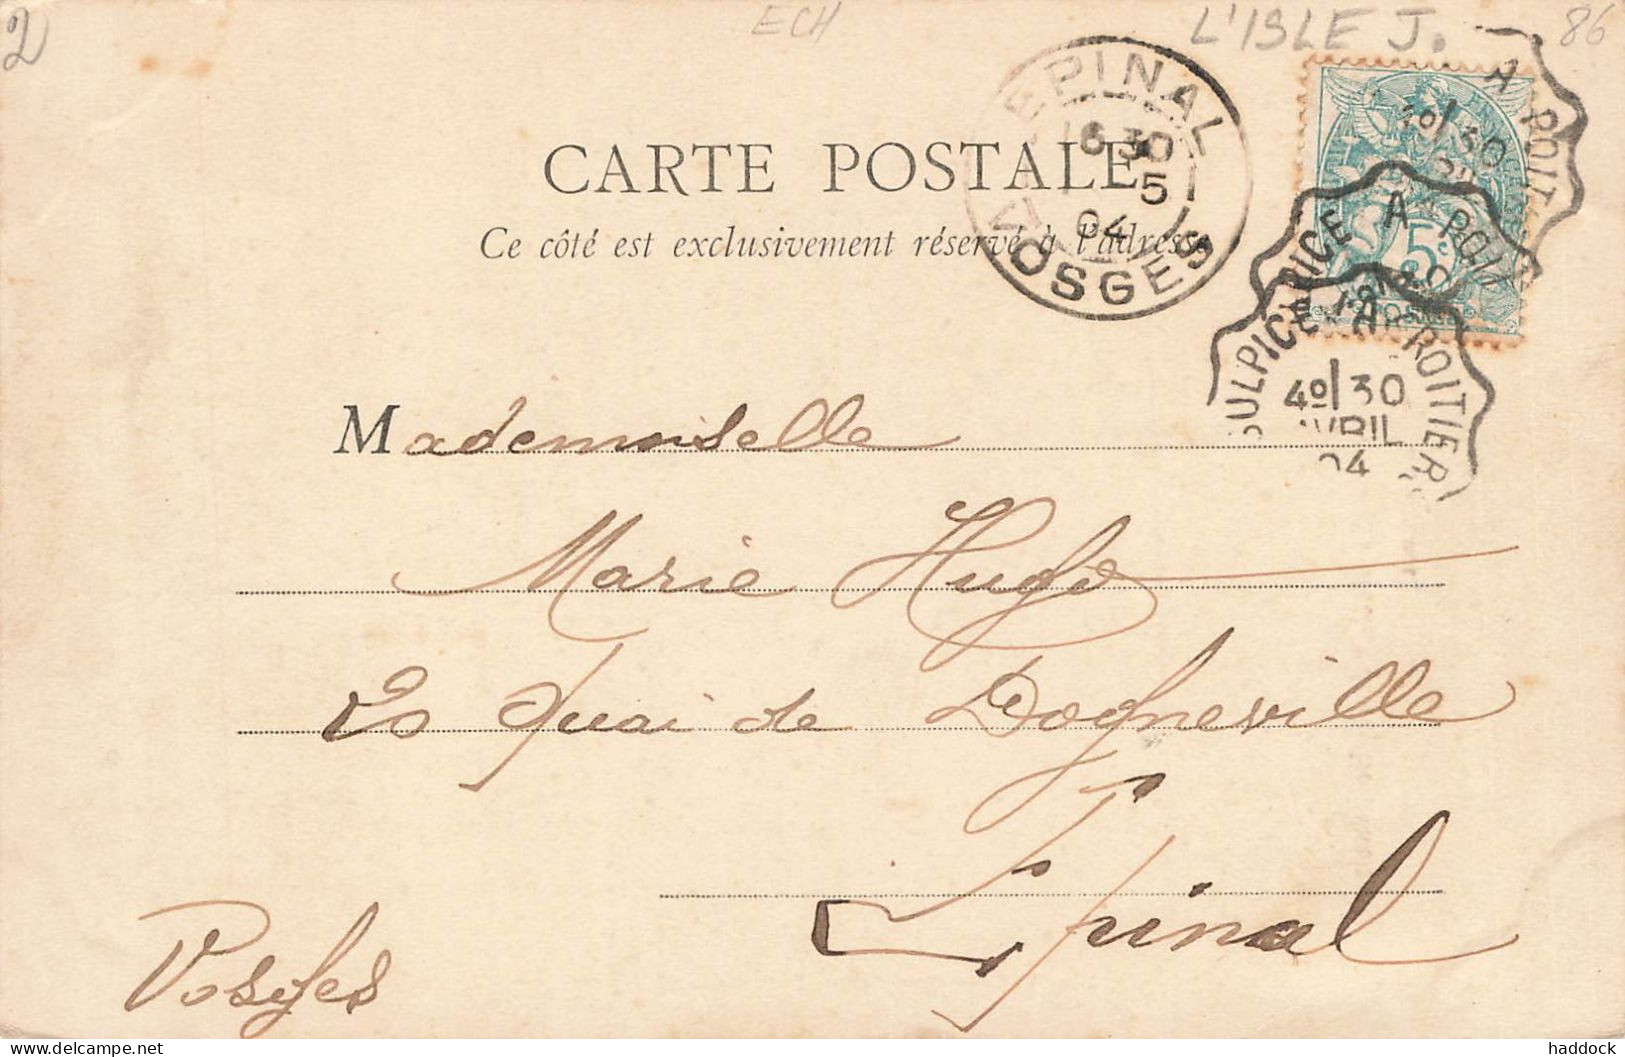 2
ECH
L'ISLE J.
86
CARTE POSTALE
Ce côté est exclusivement réservé à l'adresse
EPINAL
6 30
5
04
VOSGES
A POIT
4º/30
SULPICE A POITIERS
4º/30
AVRIL
04
5c
POSTES
Mademoiselle
Marie Hugo
Quai de Dogneville
Epinal
Vosges
haddock